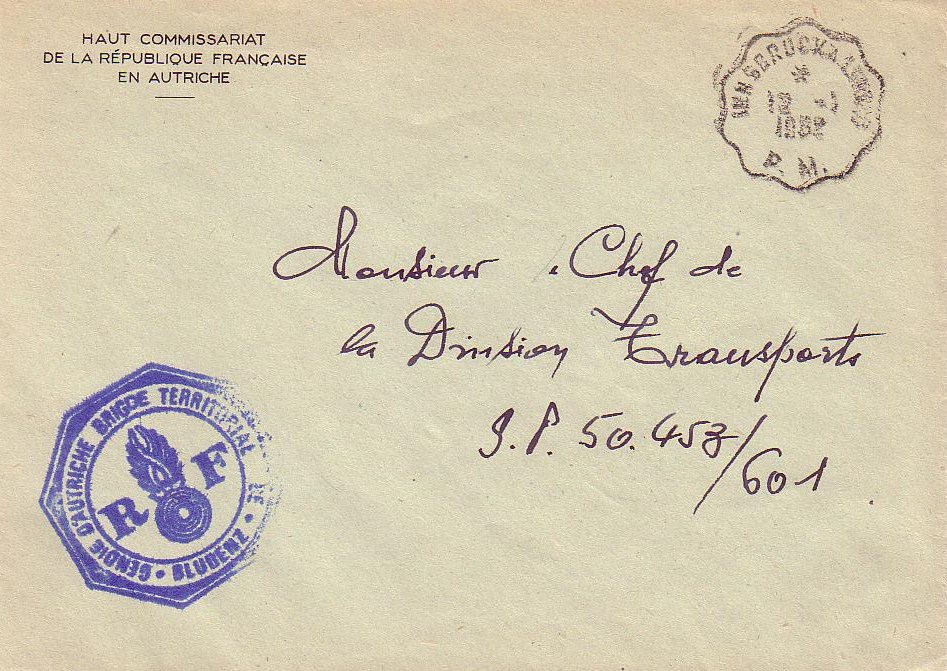 HAUT COMMISSARIAT
DE LA RÉPUBLIQUE FRANÇAISE
EN AUTRICHE
INNSBRUCK A
*
1952
P. M.
Monsieur . Chef de
la Division Transports
S.P. 50.453/601
GENDIE D'AUTRICHE BRIGDE TERRITORIALE DE
· BLUDENZ ·
R F